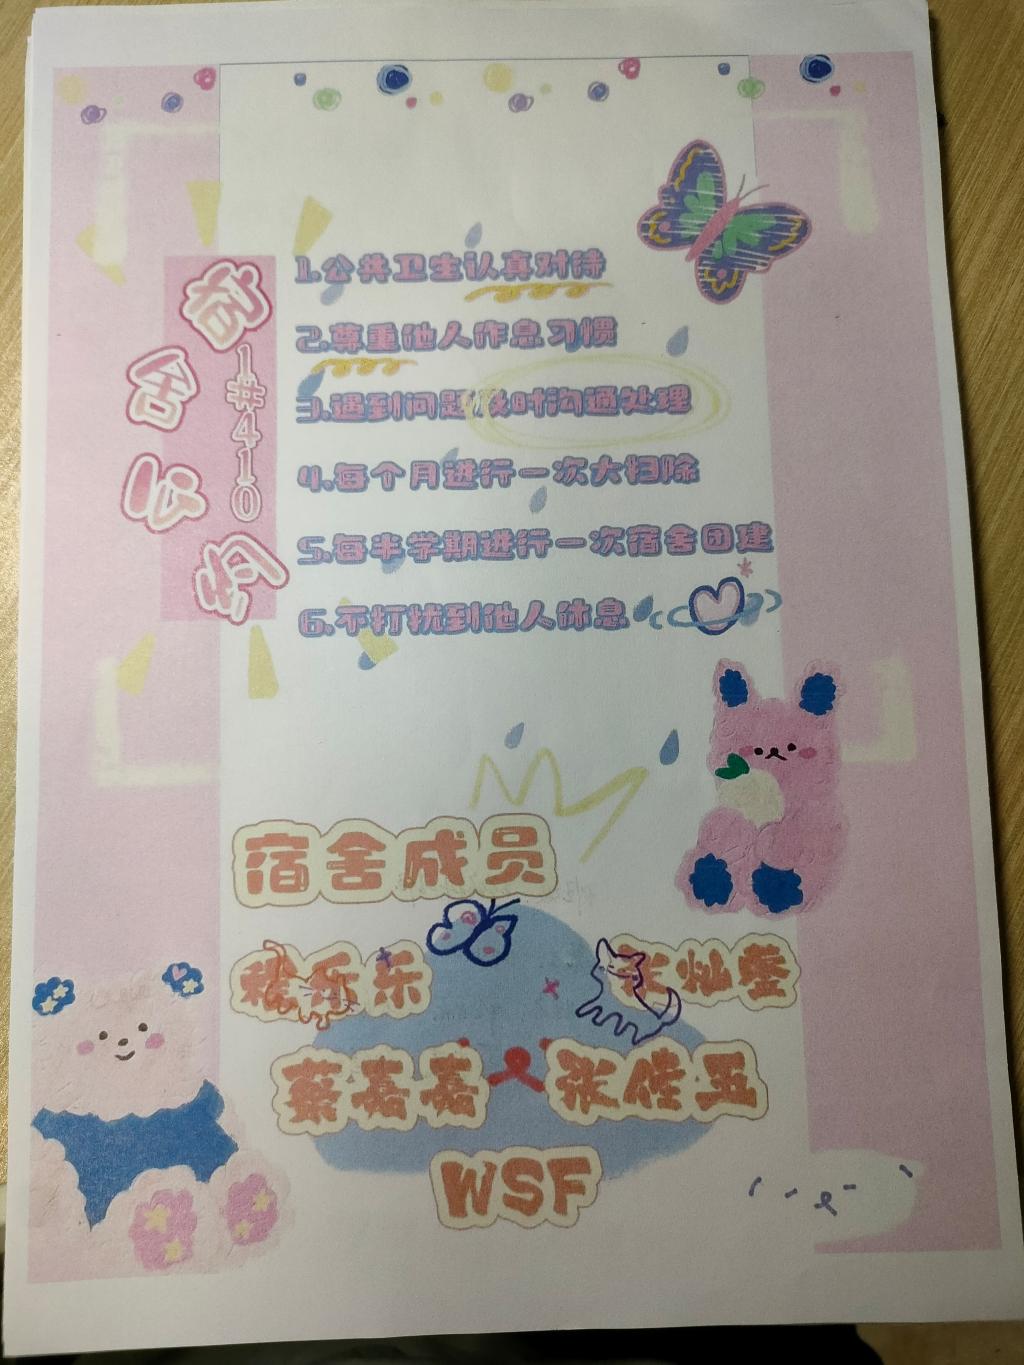 宿舍公约
1#410
1.公共卫生认真对待
2.尊重他人作息习惯
3.遇到问题及时沟通处理
4.每个月进行一次大扫除
5.每半学期进行一次宿舍团建
6.不打扰到他人休息
宿舍成员
乐乐
张灿莹
蔡嘉嘉
张佳玉
WSF